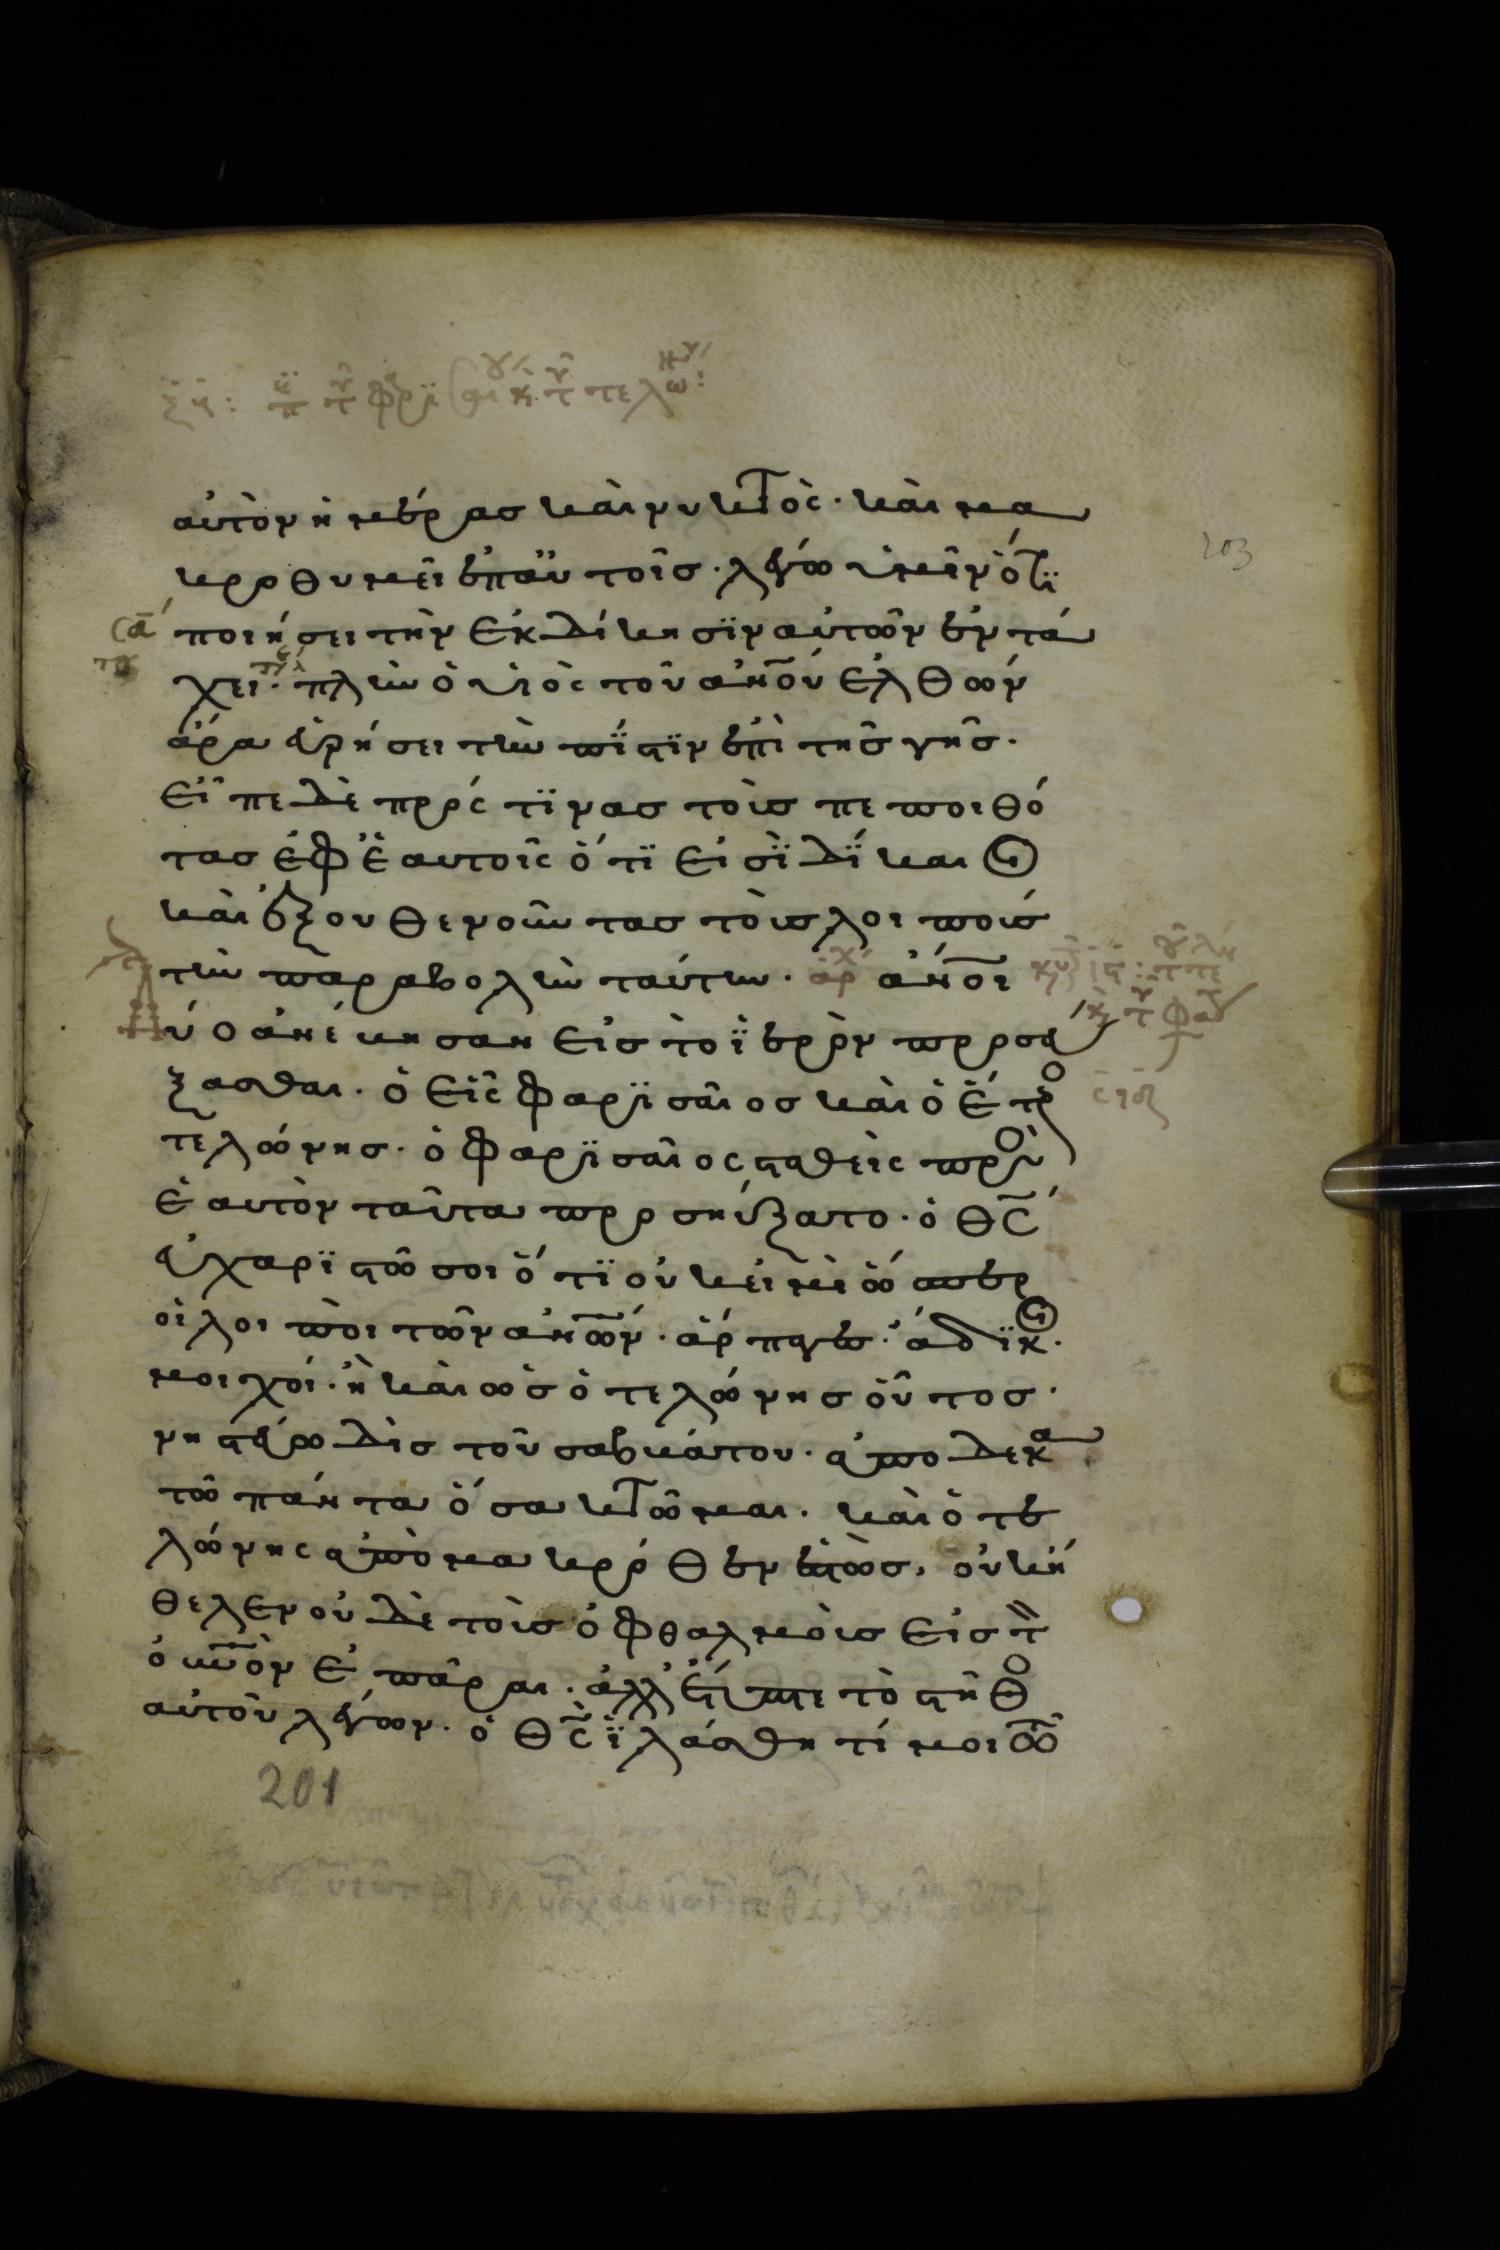 203
αὐτὸν ἡμέρας καὶ νυκτὸς· καὶ μα
κροθυμεῖ ἐπ' αὐτοῖς· λέγω ὑμῖν ὅτϊ
ποιήσει τὴν ἐκδίκησϊν αὐτῶν ἐν τά
χει· πλὴν ὁ υἱὸς τοῦ ἀνου ἐλθὼν
ἆρα εὑρήσει τὴν πίστϊν ἐπὶ τῆς γῆς·
εἶπε δὲ πρός τϊνας τοὺς πεποιθό
τας ἐφ' ἑαυτοῖς ὅτϊ εἰσὶ δίκαιοι
καὶ ἐξουθενοῦντας τοὺς λοιποὺς
τὴν παραβολὴν ταύτην· ἀρχ ἄνοι
δύο ἀνέβησαν εἰς τὸ ἱερὸν προσεύ
ξασθαι· ὁ εἷς φαρϊσαῖος καὶ ὁ ἕτερο
τελώνης· ὁ φαρϊσαῖος σταθεὶς προς
ἑαυτὸν ταῦτα προσηύξατο· ὁ θς
εὐχαρϊστῶ σοι ὅτϊ οὐκ εἰμὶ ὥσπερ
οἱ λοιποὶ τῶν ἀνων· ἅρπαγες· ἄδϊκοι·
μοιχοί· ἢ καὶ ὡς ὁ τελώνης οὗτος·
νηστεύω δὶς τοῦ σαββάτου· ἀποδεκα
τῶ πάντα ὅσα κτῶμαι· καὶ ὁ τε
λώνης ἀπὸ μακρόθεν ἑστὼς, οὐκ ἤ
θελεν οὐδὲ τοὺς ὀφθαλμοὺς εἰς τ
ὀυνὸν ἐπᾶραι· ἀλλ' ἔτυπτε τὸ στῆθο
αὐτοῦ λέγων· ὁ θς ἱλάσθητί μοι τῶ
201